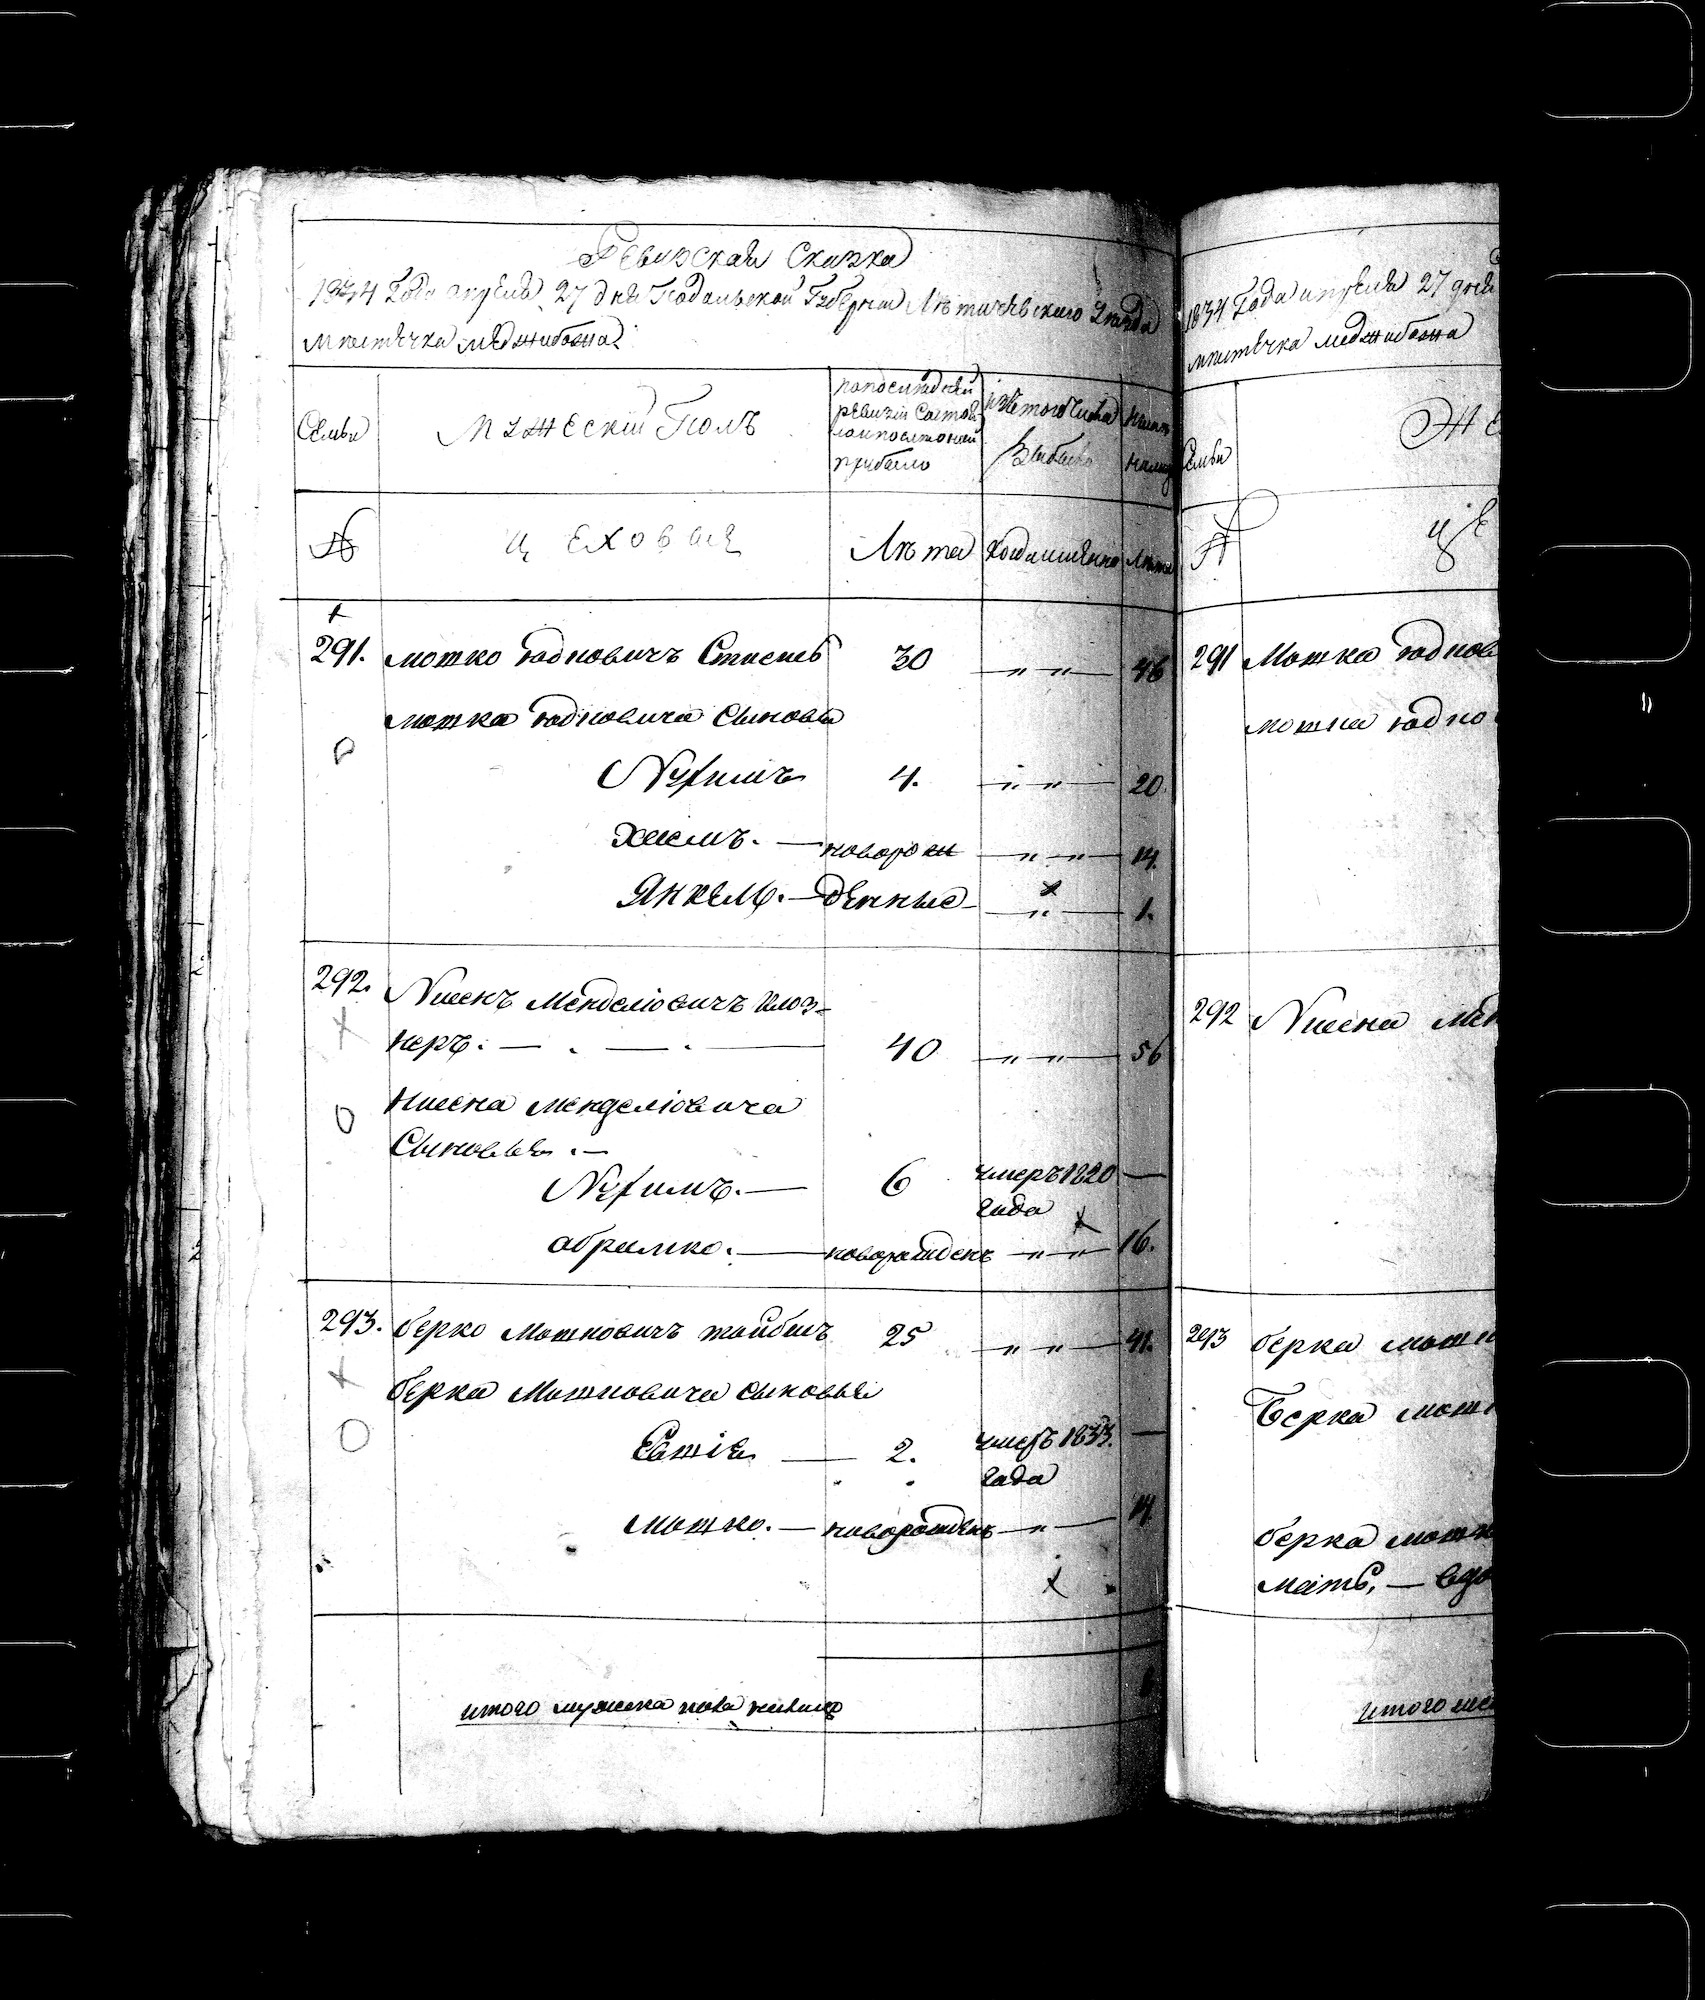 Ревизская Сказка
1834 Года апреля 27 дня Подольской Губернии Лѣтичевского Уѣзда
мѣстечка меджибожа
Семьи
мужескій Полъ
по последней
ревизіи состоя
ло и после оной
прибыло
изъ того числа
выбыло
ныне
на лицо
№
цеховые
Лѣта
Когда именно
Лѣта
291. мошко юдковичъ 30 „ „ 46
мошка юдковича сыновья
Нухимъ 4. „ „ 20.
Хаимъ. — новорож „ „ 14.
Янкель. — денные „ 1.
292. Нисенъ Менделіовичъ
неръ. 40 „ „ 56
Нисена менделіовича
Сыновья. —
Нухимъ. — 6 умеръ 1820 —
года
абрамко. — новорожденъ „ „ 16.
293. берко Мошковичъ тайбишъ 25 „ „ 41.
берка Мошковича сыновья
2. умеръ 1833. —
года
мошко. — новорожденъ „ 14
итого мужеска пола
1834 Года апреля 27 дня
мѣстечка меджибожа
Семьи
Же
№
це
291 Мошка юдков
мошка юдко
292 Нисена мен
293 берка мошк
Берка мошк
берка мошк
мать, — вдо
итого же